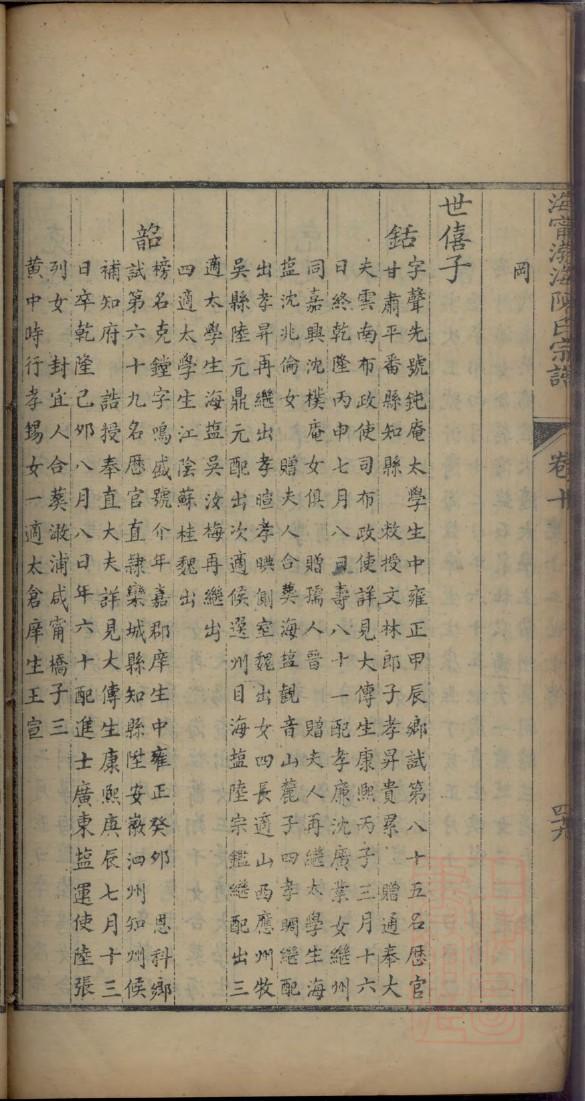 海寧渤海陳氏宗譜
卷十
四六
岡
世僖子
銛
字聲先號鈍庵太學生中雍正甲辰鄉試第八十五名歷官
甘肅平番縣知縣　敕授文林郎子孝昇貴累　贈通奉大
夫雲南布政使司布政使詳見大傳生康熙丙子三月十六
日終乾隆丙申七月八日壽八十一配孝廉沈廣業女繼州
同嘉興沈樸庵女俱　贈孺人晉　贈夫人再繼太學生海
塩沈兆倫女　贈夫人合葬海塩觀音山麓子四孝曙繼配
出孝昇再繼出孝暄孝㬢側室魏出女四長適山西應州牧
吳縣陸元鼎元配出次適候選州目海塩陸宗鑑繼配出三
適太學生海塩吳汝梅再繼出
四適太學生江陰蘇桂魏出
韶
榜名克鏜字鳴盛號介年嘉郡庠生中雍正癸卯　恩科鄉
試第六十九名歷官直隸欒城縣知縣陞安徽泗州知州候
補知府　誥授奉直大夫詳見大傳生康熙庚辰七月十三
日卒乾隆己卯八月八日年六十配進士廣東塩運使陸張
列女封宜人合葬溆浦咸甯橋子三
黃中時行孝錫女一適太倉庠生王宣